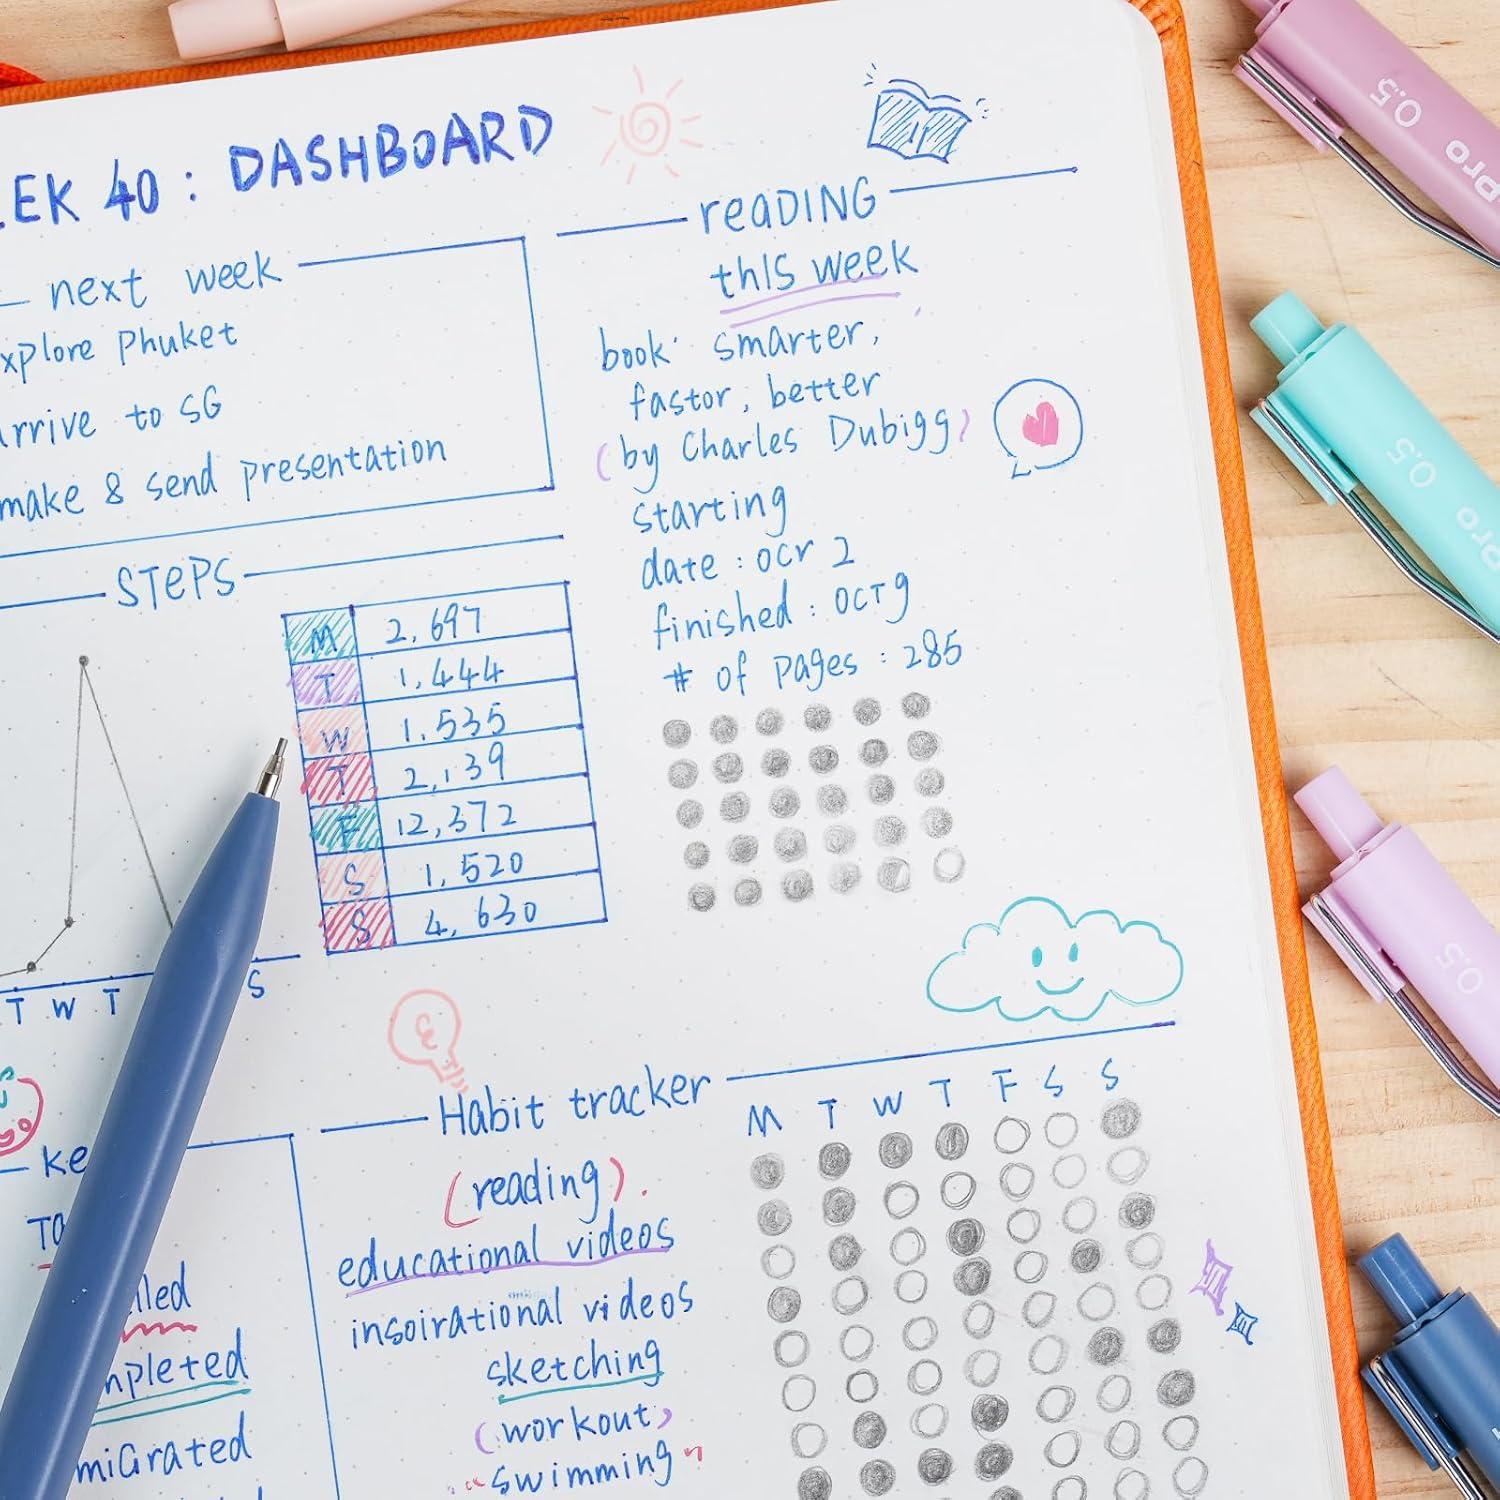 EK 40 : DASHBOARD
next week
xplore Phuket
rrive to SG
make & send presentation
reaDING
thIS week
book: smarter,
fastor, better
(by Charles Dubigg)
starting
date : ocr 2
finished : OCT 9
# of pages : 285
STEPS
M 2,697
T 1,444
W 1,535
T 2,139
F 12,372
S 1,520
S 4,630
T W T S
Habit tracker
M T W T F S S
(reading).
educational videos
insoirational videos
sketching
(workout)
"swimming"
Ke
TO
lled
mpleted
miGrated
0.5 Pro
0.5 Pro
0.5